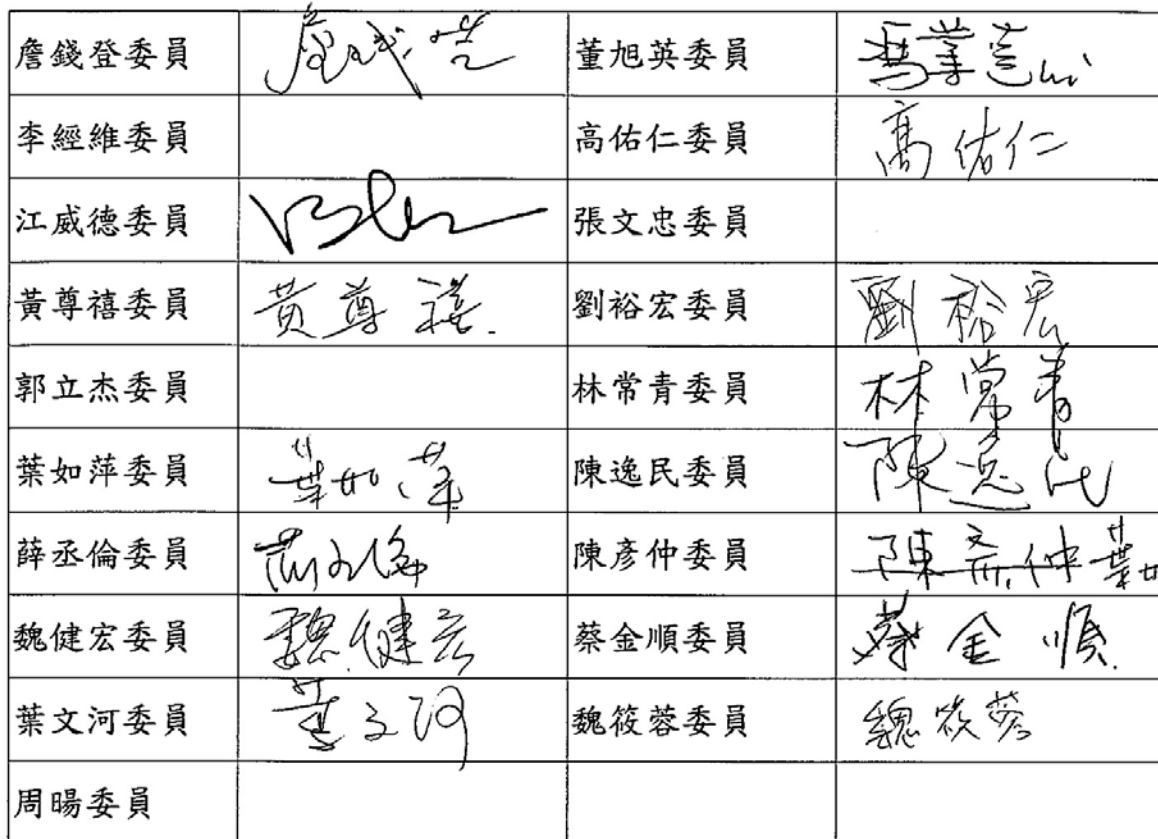 詹錢登委員 詹錢登 董旭英委員
李經維委員 高佑仁委員 高佑仁
江威德委員 張文忠委員
黃尊禧委員 黃尊禧. 劉裕宏委員 劉裕宏
郭立杰委員 林常青委員 林常青
葉如萍委員 葉如萍 陳逸民委員 陳逸民
薛丞倫委員 薛丞倫 陳彥仲委員 陳彥仲
魏健宏委員 魏健宏 蔡金順委員 蔡金順.
葉文河委員 葉文河 魏筱蓉委員 魏筱蓉
周暘委員